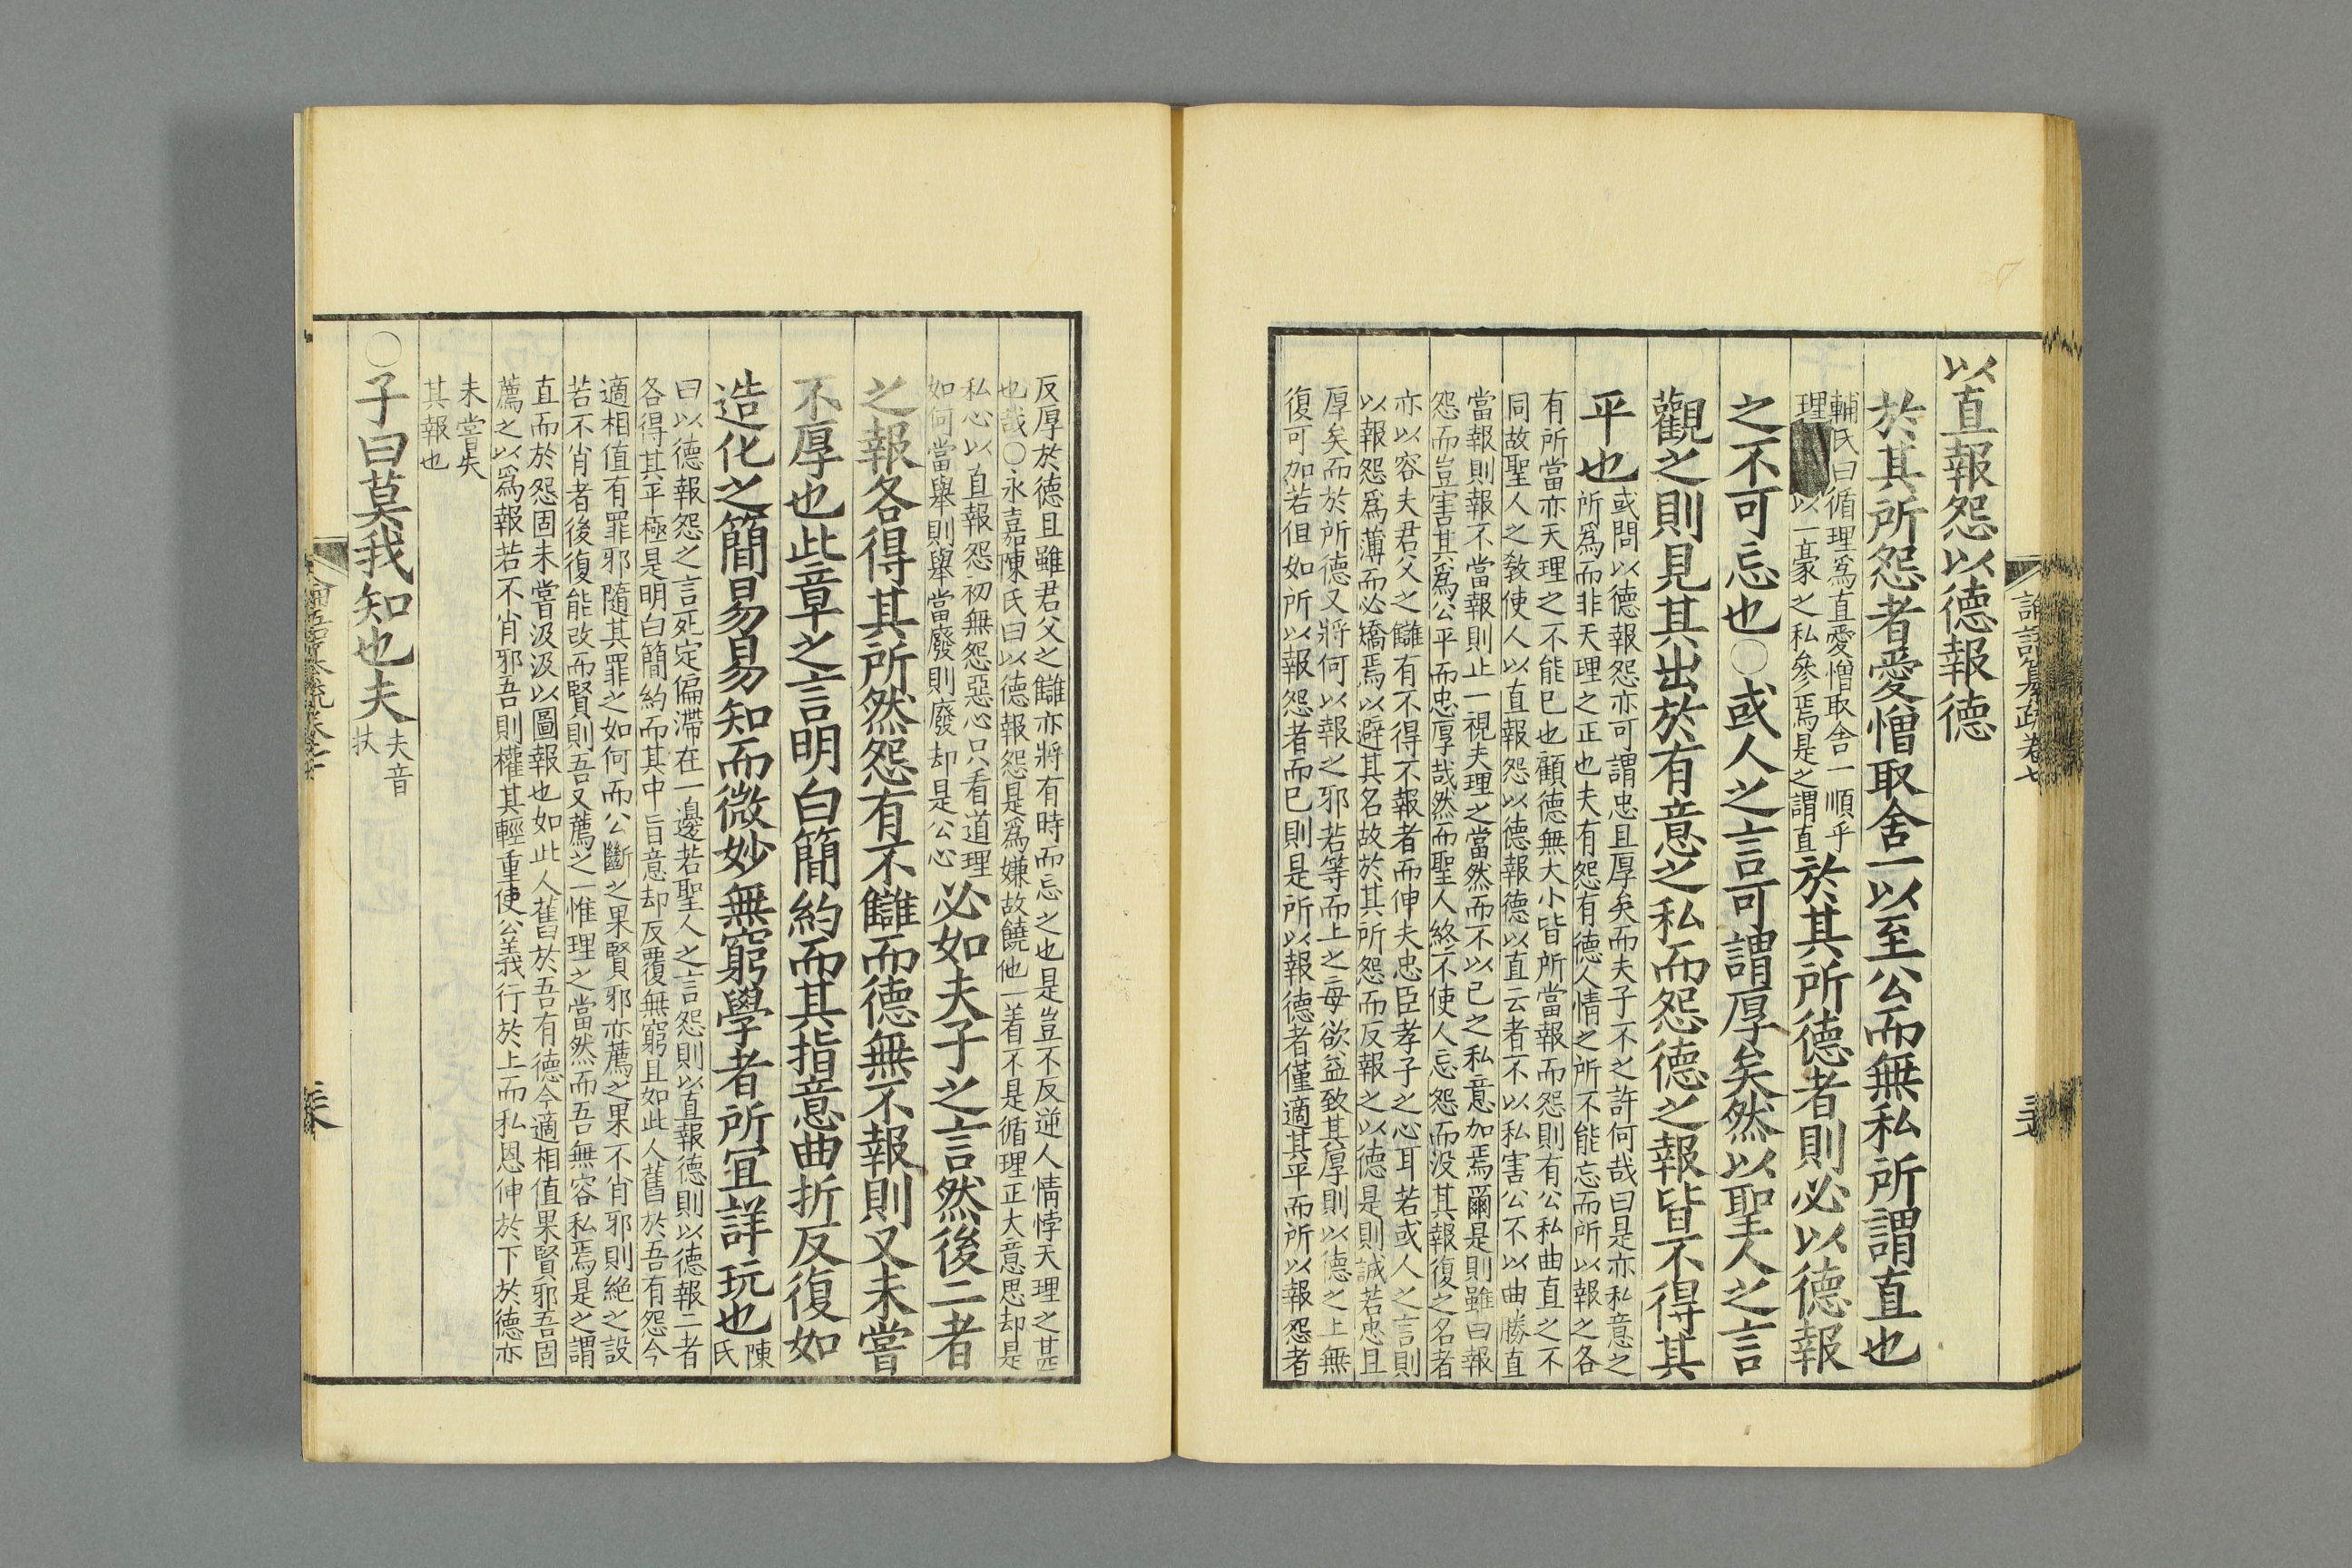 論語纂疏卷七
以直報怨以德報德
於其所怨者愛憎取舍一以至公而無私所謂直也
輔氏曰循理爲直愛憎取舍一順乎
理
以一豪之私參焉是之謂直
於其所德者則必以德報
之不可忘也○或人之言可謂厚矣然以聖人之言
觀之則見其出於有意之私而怨德之報皆不得其
平也
或問以德報怨亦可謂忠且厚矣而夫子不之許何哉曰是亦私意之
所爲而非天理之正也夫有怨有德人情之所不能忘而所以報之各
有所當亦天理之不能已也顧德無大小皆所當報而怨則有公私曲直之不
同故聖人之教使人以直報怨以德報德以直云者不以私害公不以曲勝直
當報則報不當報則止一視夫理之當然而不以己之私意加焉爾是則雖曰報
怨而豈害其爲公平而忠厚哉然而聖人終不使人忘怨而沒其報復之名者
亦以容夫君父之讎有不得不報者而伸夫忠臣孝子之心耳若或人之言則
以報怨爲薄而必矯焉以避其名故於其所怨而反報之以德是則誠若忠且
厚矣而於所德又將何以報之邪若等而上之每欲益致其厚則以德之上無
復可加若但如所以報怨者而已則是所以報德者僅適其平而所以報怨者
反厚於德且雖君父之讎亦將有時而忘之也是豈不反逆人情悖天理之甚
也哉○永嘉陳氏曰以德報怨是爲嫌故饒他一着不是循理正大意思却是
私心以直報怨初無怨惡心只看道理
如何當舉則舉當廢則廢却是公心
必如夫子之言然後二者
之報各得其所然怨有不讎而德無不報則又未嘗
不厚也此章之言明白簡約而其指意曲折反復如
造化之簡易易知而微妙無窮學者所宜詳玩也
陳
氏
曰以德報怨之言死定偏滯在一邊若聖人之言怨則以直報德則以德報二者
各得其平極是明白簡約而其中旨意却反覆無窮且如此人舊於吾有怨今
適相值有罪邪隨其罪之如何而公斷之果賢邪亦薦之果不肖邪則絕之設
若不肖者後復能改而賢則吾又薦之一惟理之當然而吾無容私焉是之謂
直而於怨固未嘗汲汲以圖報也如此人舊於吾有德今適相值果賢邪吾固
薦之以爲報若不肖邪吾則權其輕重使公義行於上而私恩伸於下於德亦
未嘗失
其報也
○子曰莫我知也夫
夫音
扶